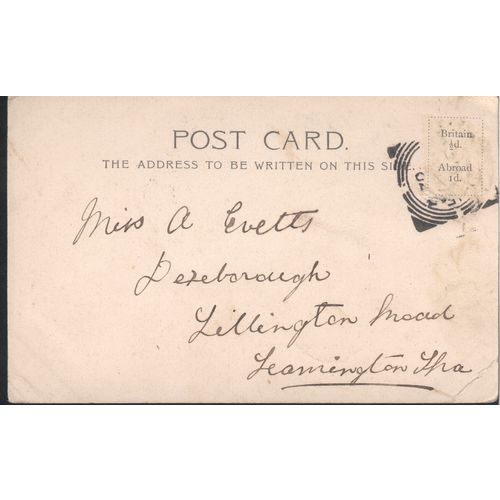 POST CARD.
THE ADDRESS TO BE WRITTEN ON THIS SIDE.
Britain
½d.
Abroad
1d.
Miss A Evetts
Dezeborough
Lillington Road
Leamington Spa